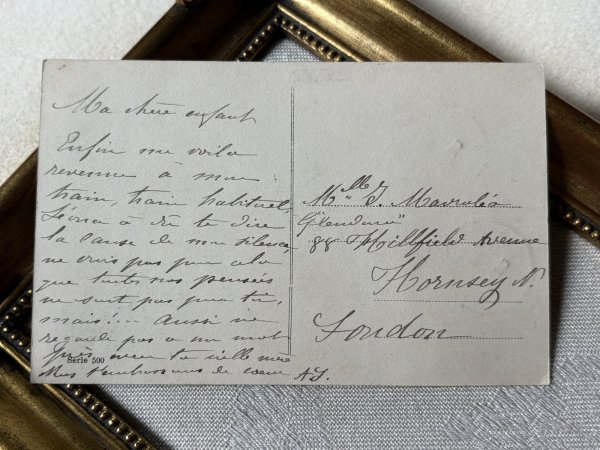 Ma chère enfant
Enfin me voila
revenue à mon
train, train habituel,
Léona à dû te dire
la cause de mon silence,
ne crois pas pour cela
que toutes nos pensées
ne sont pas pour toi,
mais!... Aussi ne
regarde pas a un mot
Série 500
Nous t'embrassons de cœur A.J.
Mlle J.
"Glendura"
88 Hillfield Avenue
Hornsey N.
London